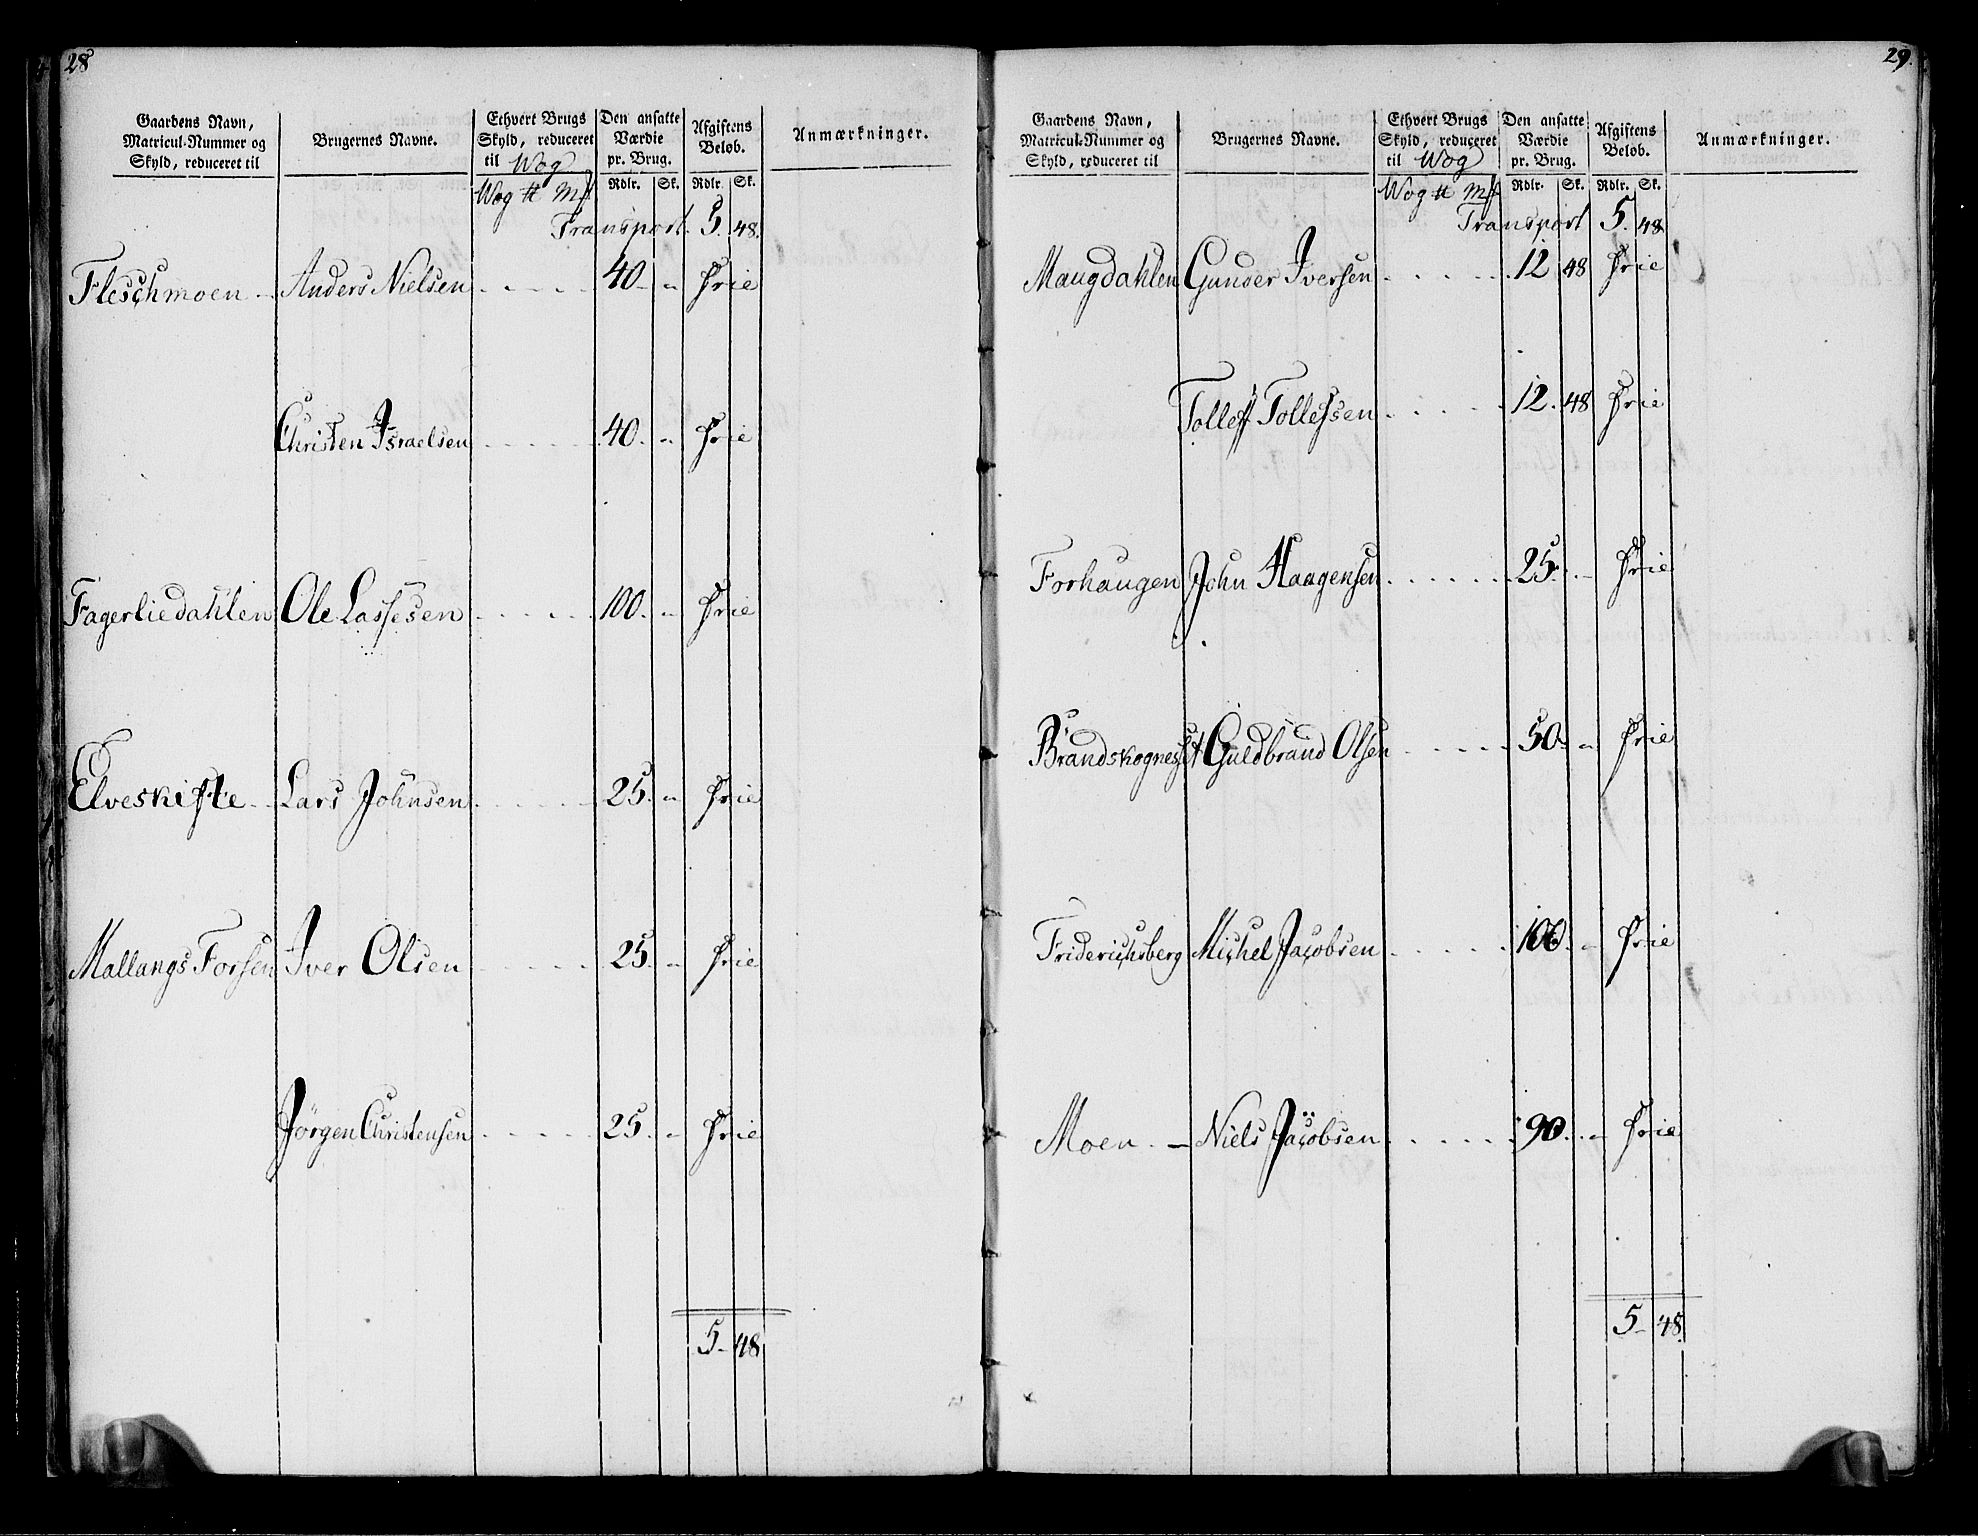 28
Gaardens Navn, Matricul-Nummer og Skyld, reduceret til | Brugernes Navne. | Ethvert Brugs Skyld, reduceret til Wog | Den ansatte Værdie pr. Brug. | Afgiftens Beløb. | Anmærkninger.
Wog ℔ Mk | Rdlr. | Sk. | Rdlr. | Sk.
Transport. 5. 48.
Fleschmoen Anders Nielsen 40 - " frie
Christen Israelsen 40. " frie
Fagerliedahlen Ole Lassesen 100. " frie
Elveskifte Lars Johnsen 25. " frie
Mallangs Forsen Iver Olsen 25. " frie
Jörgen Christensen 25. " frie
5 - 48
29.
Gaardens Navn, Matricul-Nummer og Skyld, reduceret til | Brugernes Navne. | Ethvert Brugs Skyld, reduceret til Wog | Den ansatte Værdie pr. Brug. | Afgiftens Beløb. | Anmærkninger.
Wog ℔ Mk | Rdlr. | Sk. | Rdlr. | Sk.
Transport 5. 48
Maugdahlen Gunder Iversen 12 48 frie
Tollef Tollefsen 12. 48 frie
Forhaugen John Haagensen 25. - frie
Brandskognesset Guldbrand Olsen 50. " frie
Friderichsberg Michel Jacobsen 100. " frie
Moen. Niels Jacobsen 90. " frie
5 - 48.